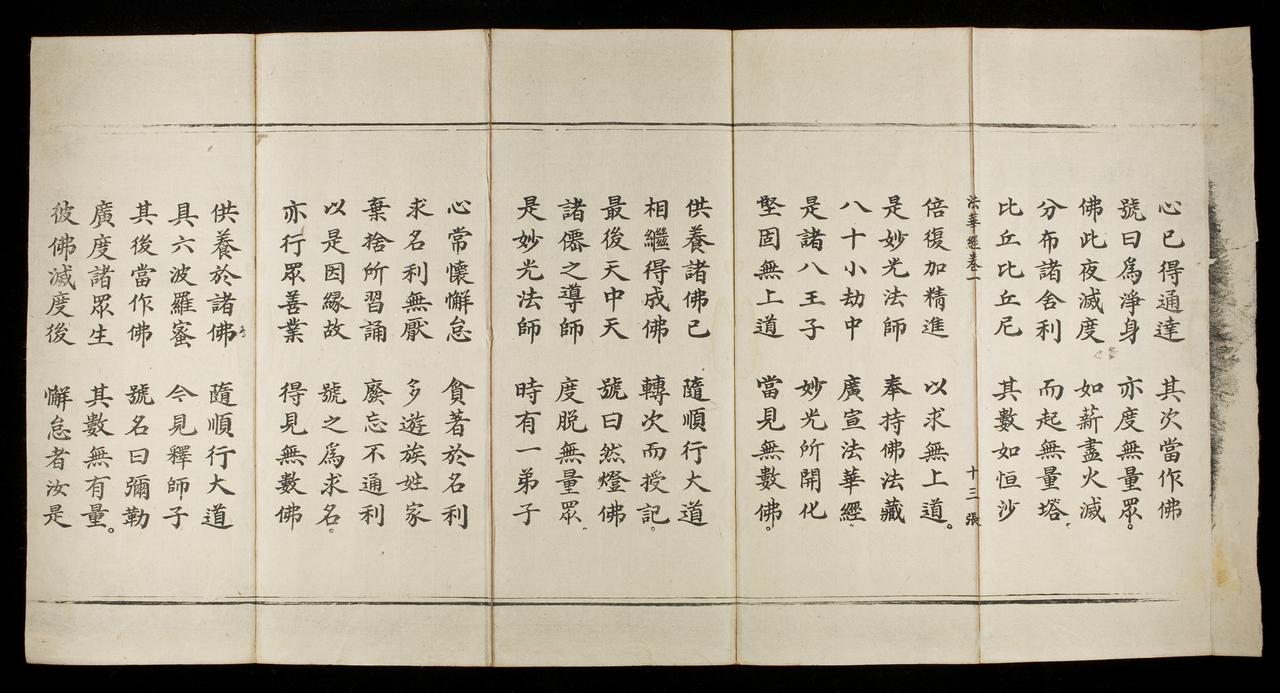 心已得通達 其次當作佛
號曰爲淨身 亦度無量眾。
佛此夜滅度 如薪盡火滅
分布諸舍利 而起無量塔。
比丘比丘尼 其數如恒沙
法華經卷一 十三張
倍復加精進 以求無上道。
是妙光法師 奉持佛法藏
八十小劫中 廣宣法華經。
是諸八王子 妙光所開化
堅固無上道 當見無數佛。
供養諸佛已 隨順行大道
相繼得成佛 轉次而授記。
最後天中天 號曰然燈佛
諸僊之導師 度脫無量眾。
是妙光法師 時有一弟子
心常懷懈怠 貪著於名利
求名利無厭 多遊族姓家
棄捨所習誦 廢忘不通利
以是因緣故 號之爲求名。
亦行眾善業 得見無數佛
供養於諸佛 隨順行大道
具六波羅蜜 今見釋師子
其後當作佛 號名曰彌勒
廣度諸眾生 其數無有量。
彼佛滅度後 懈怠者汝是